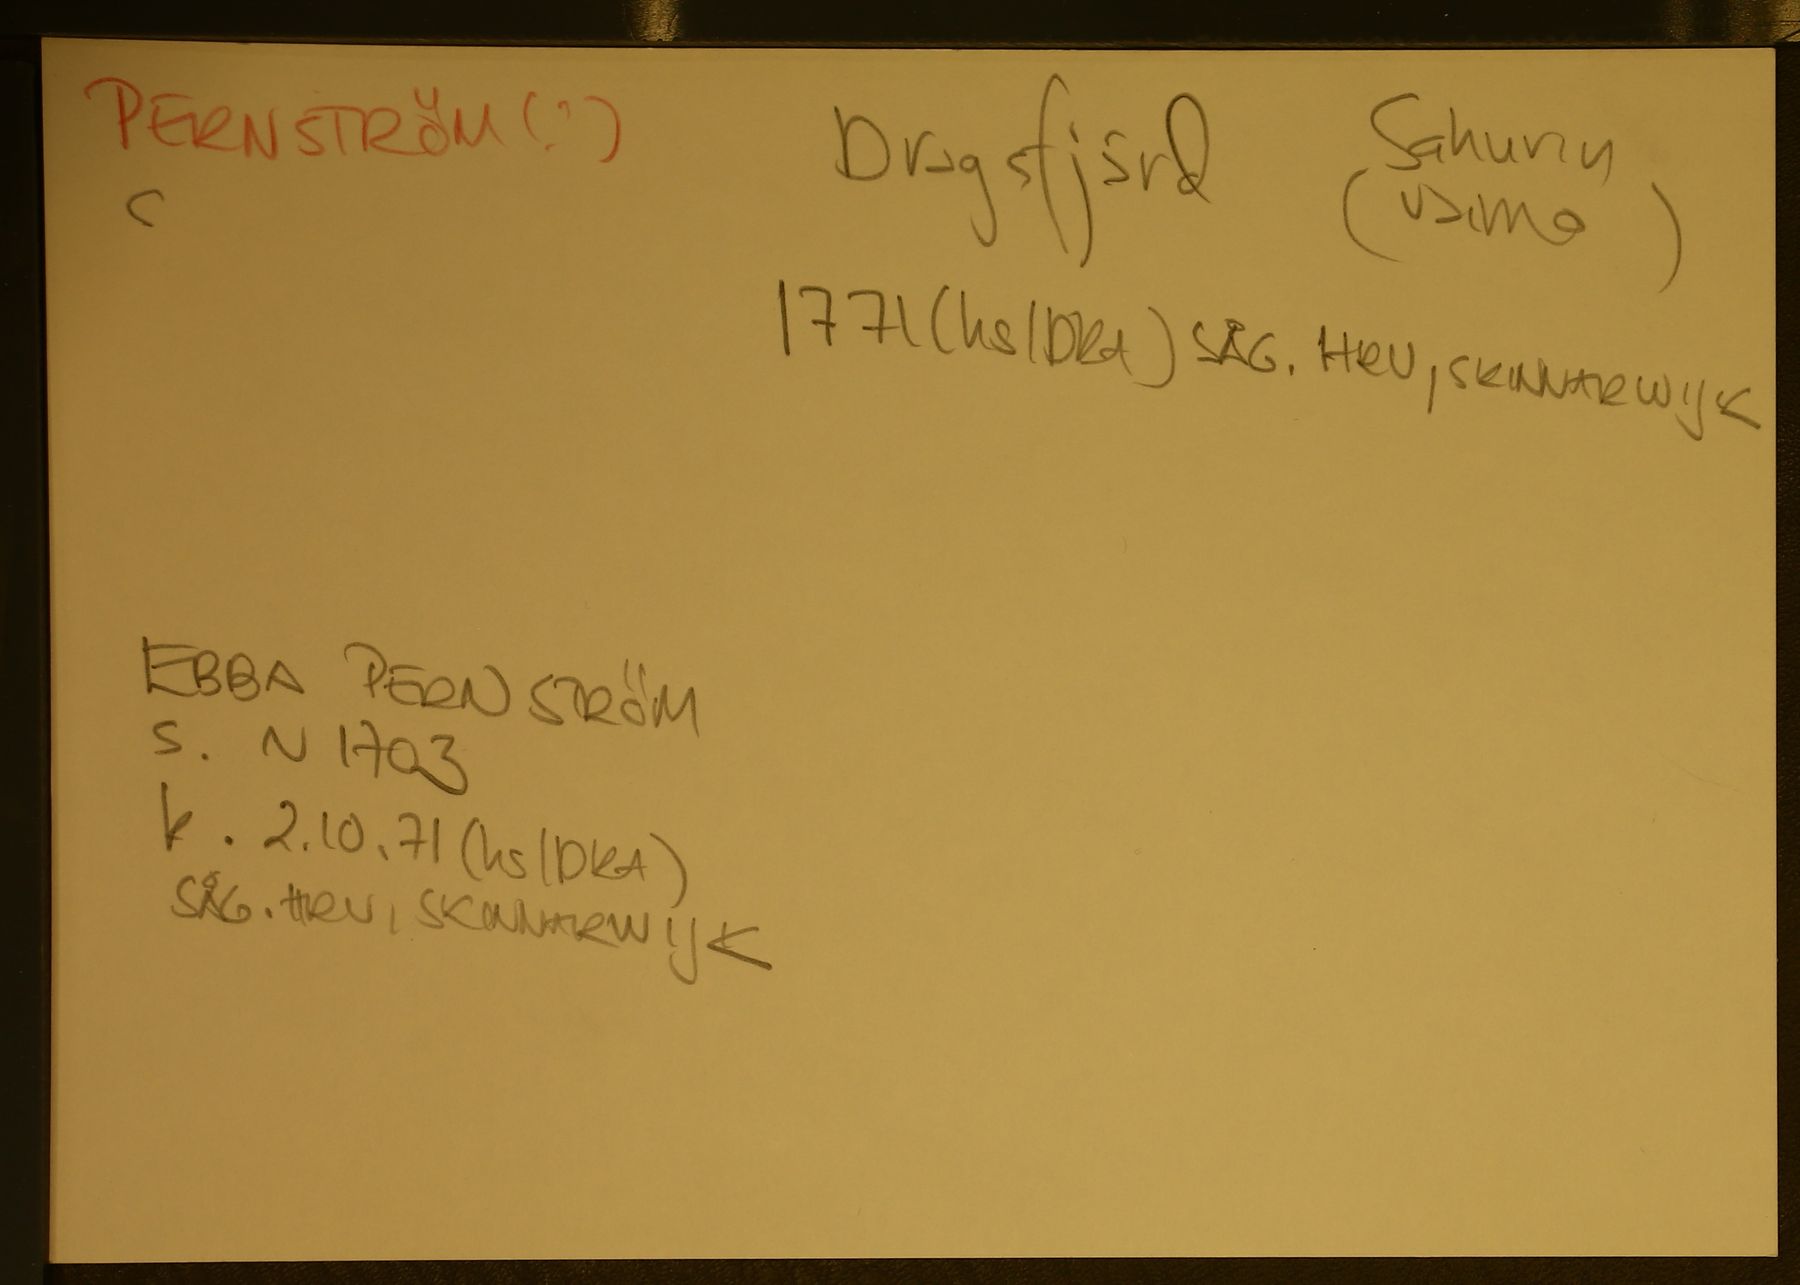 PERNSTRÖM (?)
C
Dragsfjärd
Sahurin
(vaimo)
1771 (hs/DKA) SÅG. HRU, SKINNARWIJK
EBBA PERNSTRÖM
S. N 1703
k. 2.10.71 (hs/DKA)
SÅG. HRU, SKINNARWIJK